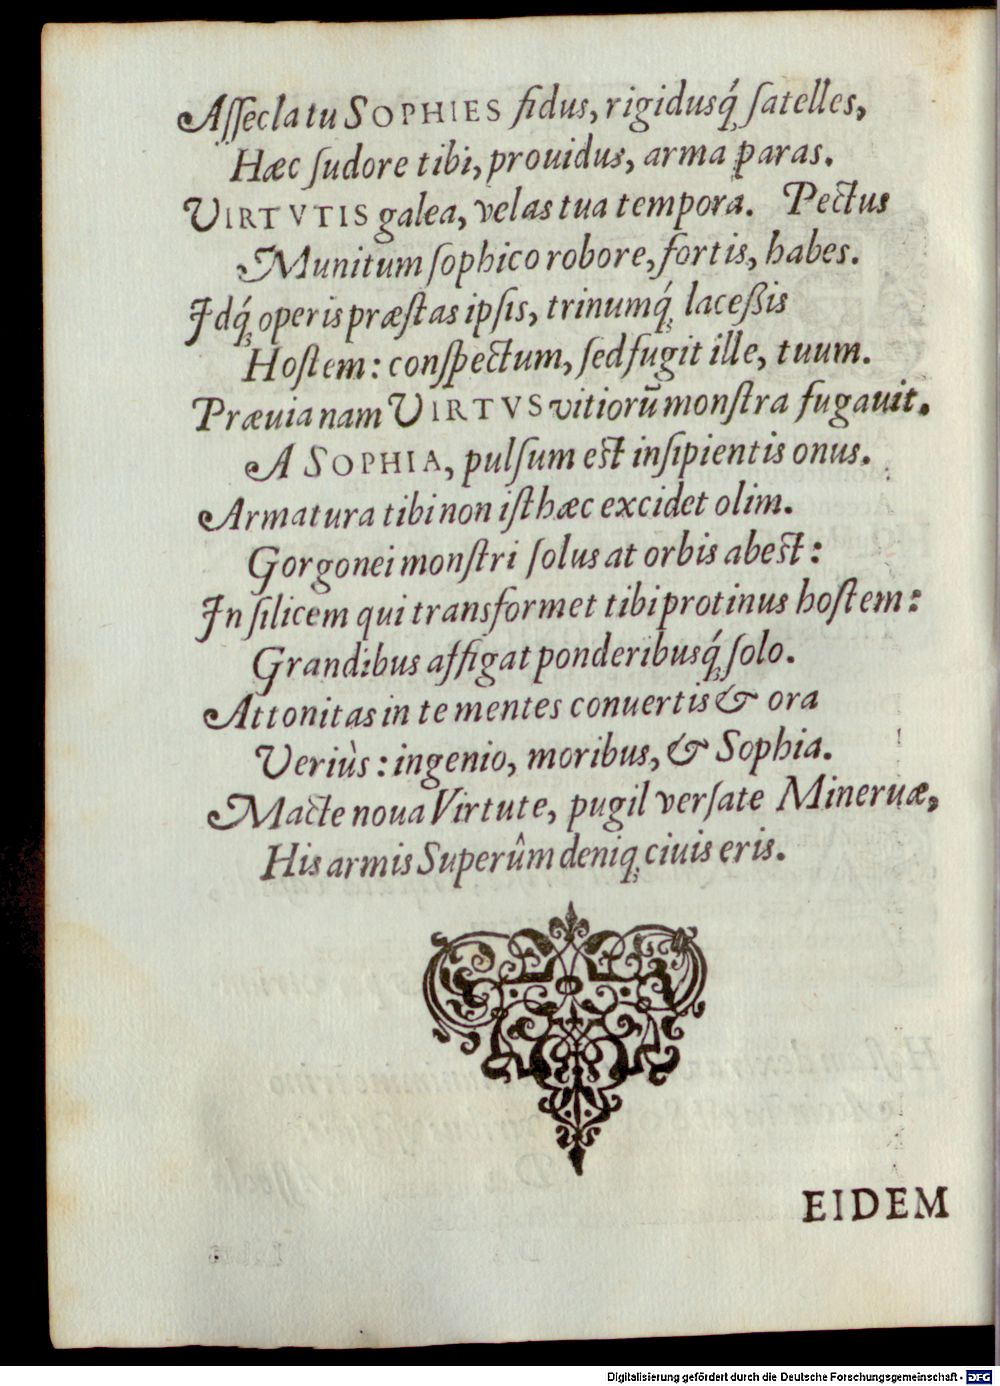 Aſſecla tu SOPHIES fidus, rigidusq́ ſatelles,
Hæc ſudore tibi, prouidus, arma paras.
VIRTVTIS galea, velas tua tempora. Pectus
Munitum ſophico robore, fortis, habes.
Idq́ operis præſtas ipſis, trinumq́ laceßis
Hoſtem: conſpectum, ſed fugit ille, tuum.
Præuia nam VIRTVS vitiorū monſtra fugauit.
A SOPHIA, pulſum est inſipientis onus.
Armatura tibi non iſthæc excidet olim.
Gorgonei monſtri ſolus at orbis abest:
In ſilicem qui transformet tibi protinus hoſtem:
Grandibus affigat ponderibusq́ ſolo.
Attonitas in te mentes conuertis & ora
Veriùs: ingenio, moribus, & Sophia.
Macte noua Virtute, pugil verſate Mineruæ,
His armis Superûm deniq ciuis eris.
EIDEM
Digitalisierung gefördert durch die Deutsche Forschungsgemeinschaft - DFG